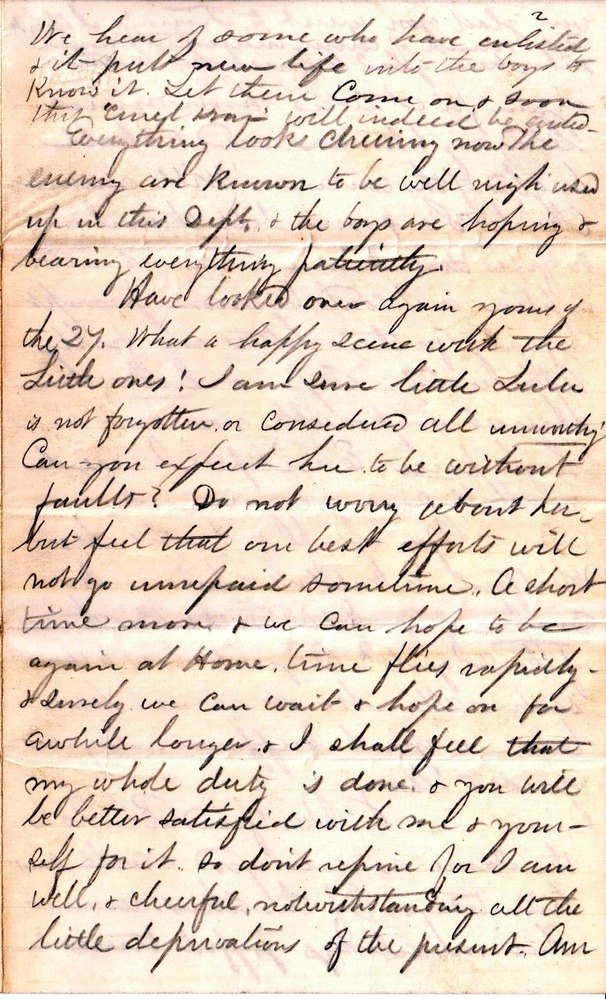 2
We hear of some who have enlisted
& it puts new life into the boys to
Know it. Let them Come on & soon
this "Cruel War" will indeed be ended.
Everything looks cheering now The
enemy are known to be well nigh used
up in this Dept. & the boys are hoping &
bearing everything patiently.
Have looked over again yours of
the 27. What a happy scene with the
Little ones! I am sure little Lulu
is not forgotten, or considered all unworthy
Can you expect her to be without
faults? Do not worry about her,
but feel that our best efforts will
not go unrepaid sometime. A short
time more & we can hope to be
again at Home. time flies rapidly-
& surely we can wait & hope on for
awhile longer. & I shall feel that
my whole duty is done. & you will
be better satisfied with me & your-
self for it. so don't repine for I am
well, & cheerful, notwithstanding all the
little deprivations of the present. Am